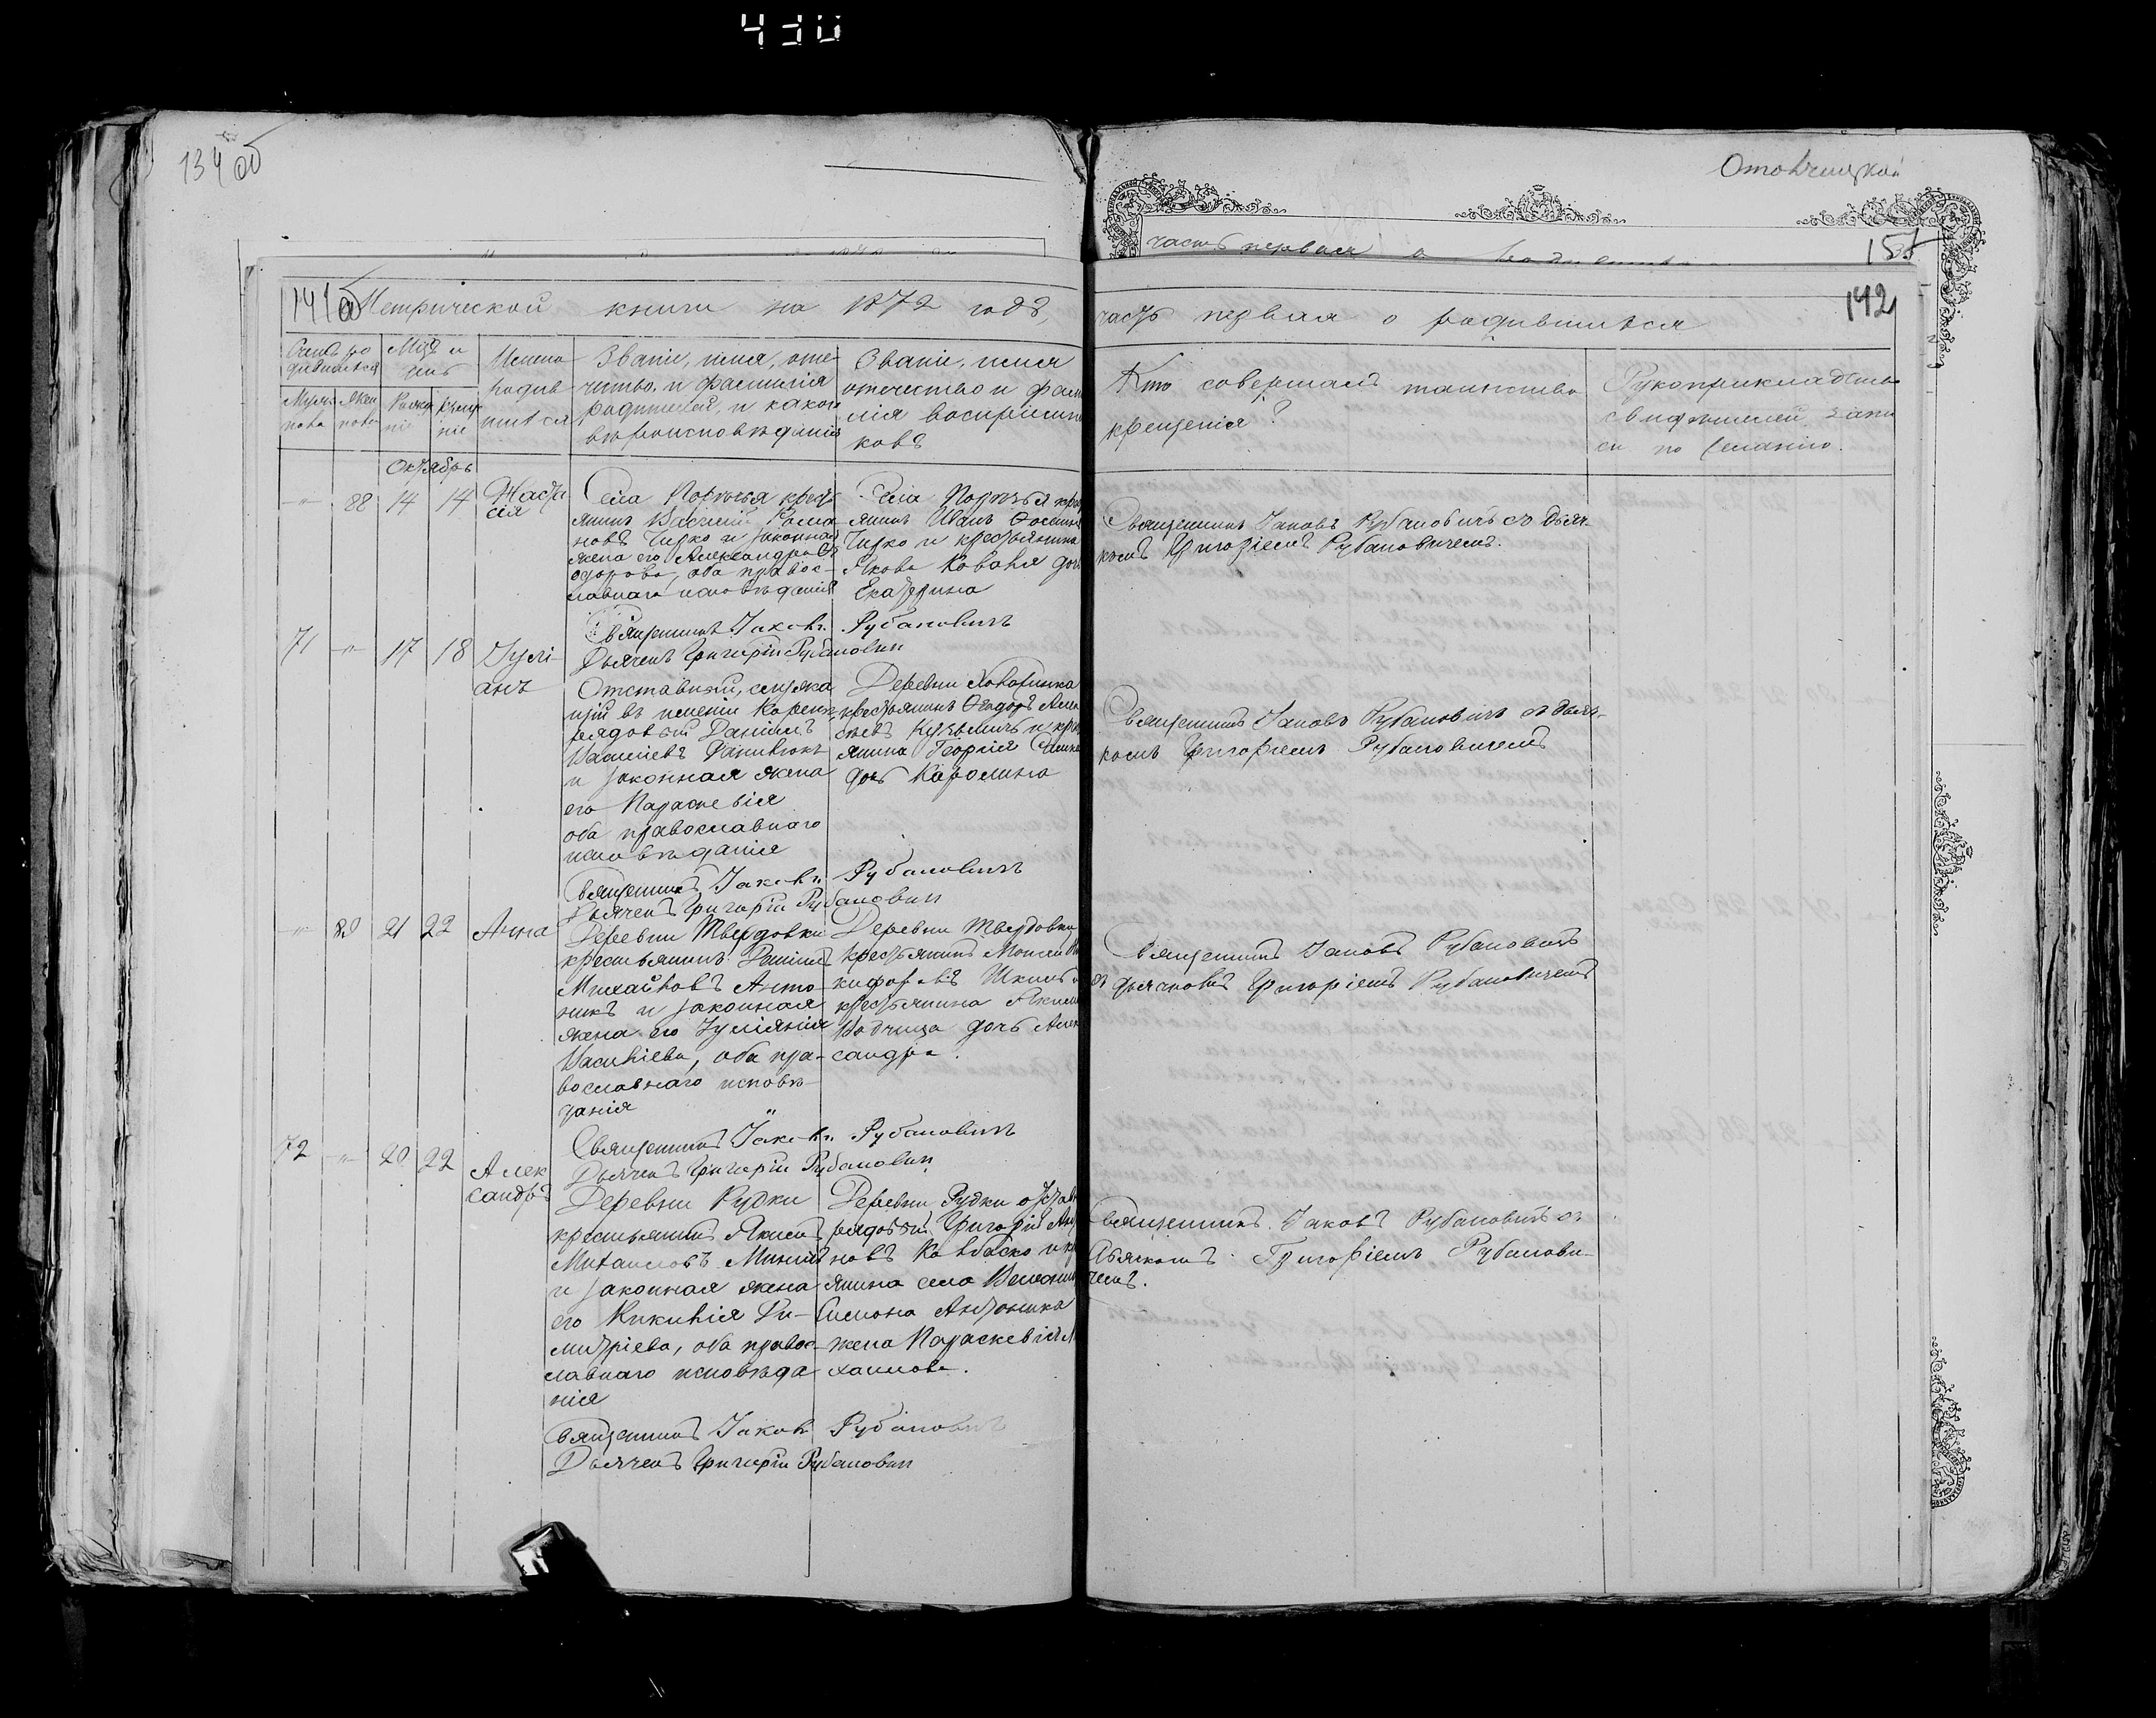 430
134 об
Отовчицкой
часть первая о
157
141 об
Метрической книги на 1872 годъ,
часть первая о родившихся
142
Счетъ ро
дившихся
Муже
ска
Жен
ска
Мѣс. и
день
Рожде
ніе
Креще
ніе
Имена
родив
шихся
Званіе, имя, оте-
чество, и фамилія
родителей, и какого
вѣроисповѣданія
Званіе, имя
отечество и фами
лія воспріемни
ковъ
Кто совершалъ таинство
крещенія?
Рукоприкладство
свидѣтелей запи
си по желанію.
Октябрь
-"- 88 14 14
Наста
сія
Села Порѣчья кресть
янинъ Василій Рома
новъ Чирко и законная
жена его Александра Ѳе
одорова, оба правос-
лавнаго исповѣданія
Села Порѣчья крес
янинъ Иванъ
Чирко и крестьянина
Якова Коваля дочь
Екатерина
Священникъ Іаковъ Рубановичъ съ дьяч
комъ Григоріемъ Рубановичемъ.
Священникъ Іаковъ Рубановичъ
Дьячекъ Григорій Рубановичъ
71 -"- 17 18
Іулі-
анъ
Отставной,
щій въ имении
рядовой Даніилъ
Васильевъ Данилюкъ
и законная жена
его Параскевія
оба православнаго
исповѣданія
Деревни
крестьянинъ Ѳеодоръ Але
сѣевъ и кре
янина Георгія
дочь Каролина
Священникъ Іаковъ Рубановичъ съ дьяч-
комъ Григоріемъ Рубановичемъ
Священникъ Іаковъ Рубановичъ
Дьячекъ Григорій Рубановичъ
-"- 89 21 22
Анна
Деревни Твердовки
крестьянинъ Даніилъ
Михайловъ Анто
никъ и законная
жена его Іуліянія
Васильева, оба пра-
вославнаго исповѣ-
данія
Деревни Твердовки
крестьянинъ Моисей Ни
кифоровъ
крестьянина Якима
Водчица дочь Алек
сандра.
Священникъ Іаковъ Рубановичъ
съ дьячковъ Григоріемъ Рубановичемъ
Священникъ Іаковъ Рубановичъ
Дьячекъ Григорій Рубановичъ
72 -"- 20 22
Алек
сандръ
Деревни Рудки
крестьянинъ Якимъ
Михаиловъ
и законная жена
его Ди-
митріева, оба правос-
лавнаго исповѣда
нія
Деревни Рудки отстав
рядовой Григорій Анд
новъ Ковбаско и кр
янина села
Симона Антоника
жена Параскевія М
хаилова.
Священникъ Іаковъ Рубановичъ съ
дьячкомъ Григоріемъ Рубанови-
чемъ.
Священникъ Іаковъ Рубановичъ
Дьячекъ Григорій Рубановичъ